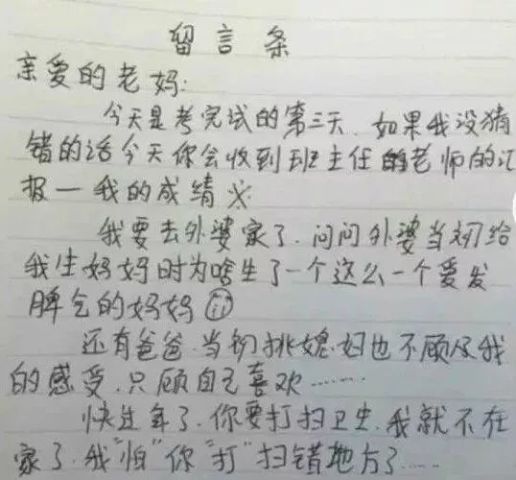 留言条
亲爱的老妈:
今天是考完试的第三天.如果我没猜
错的话今天你会收到班主任老师的汇
报一我的成绩
我要去外婆家了.问问外婆当初给
我生妈妈时为啥生了一个这么一个爱发
脾气的妈妈
还有爸爸.当初挑媳妇也不顾及我
的感受.只顾自己喜欢……
快过年了.你要打扫卫生.我就不在
家了.我"怕"你"打"扫错地方了……